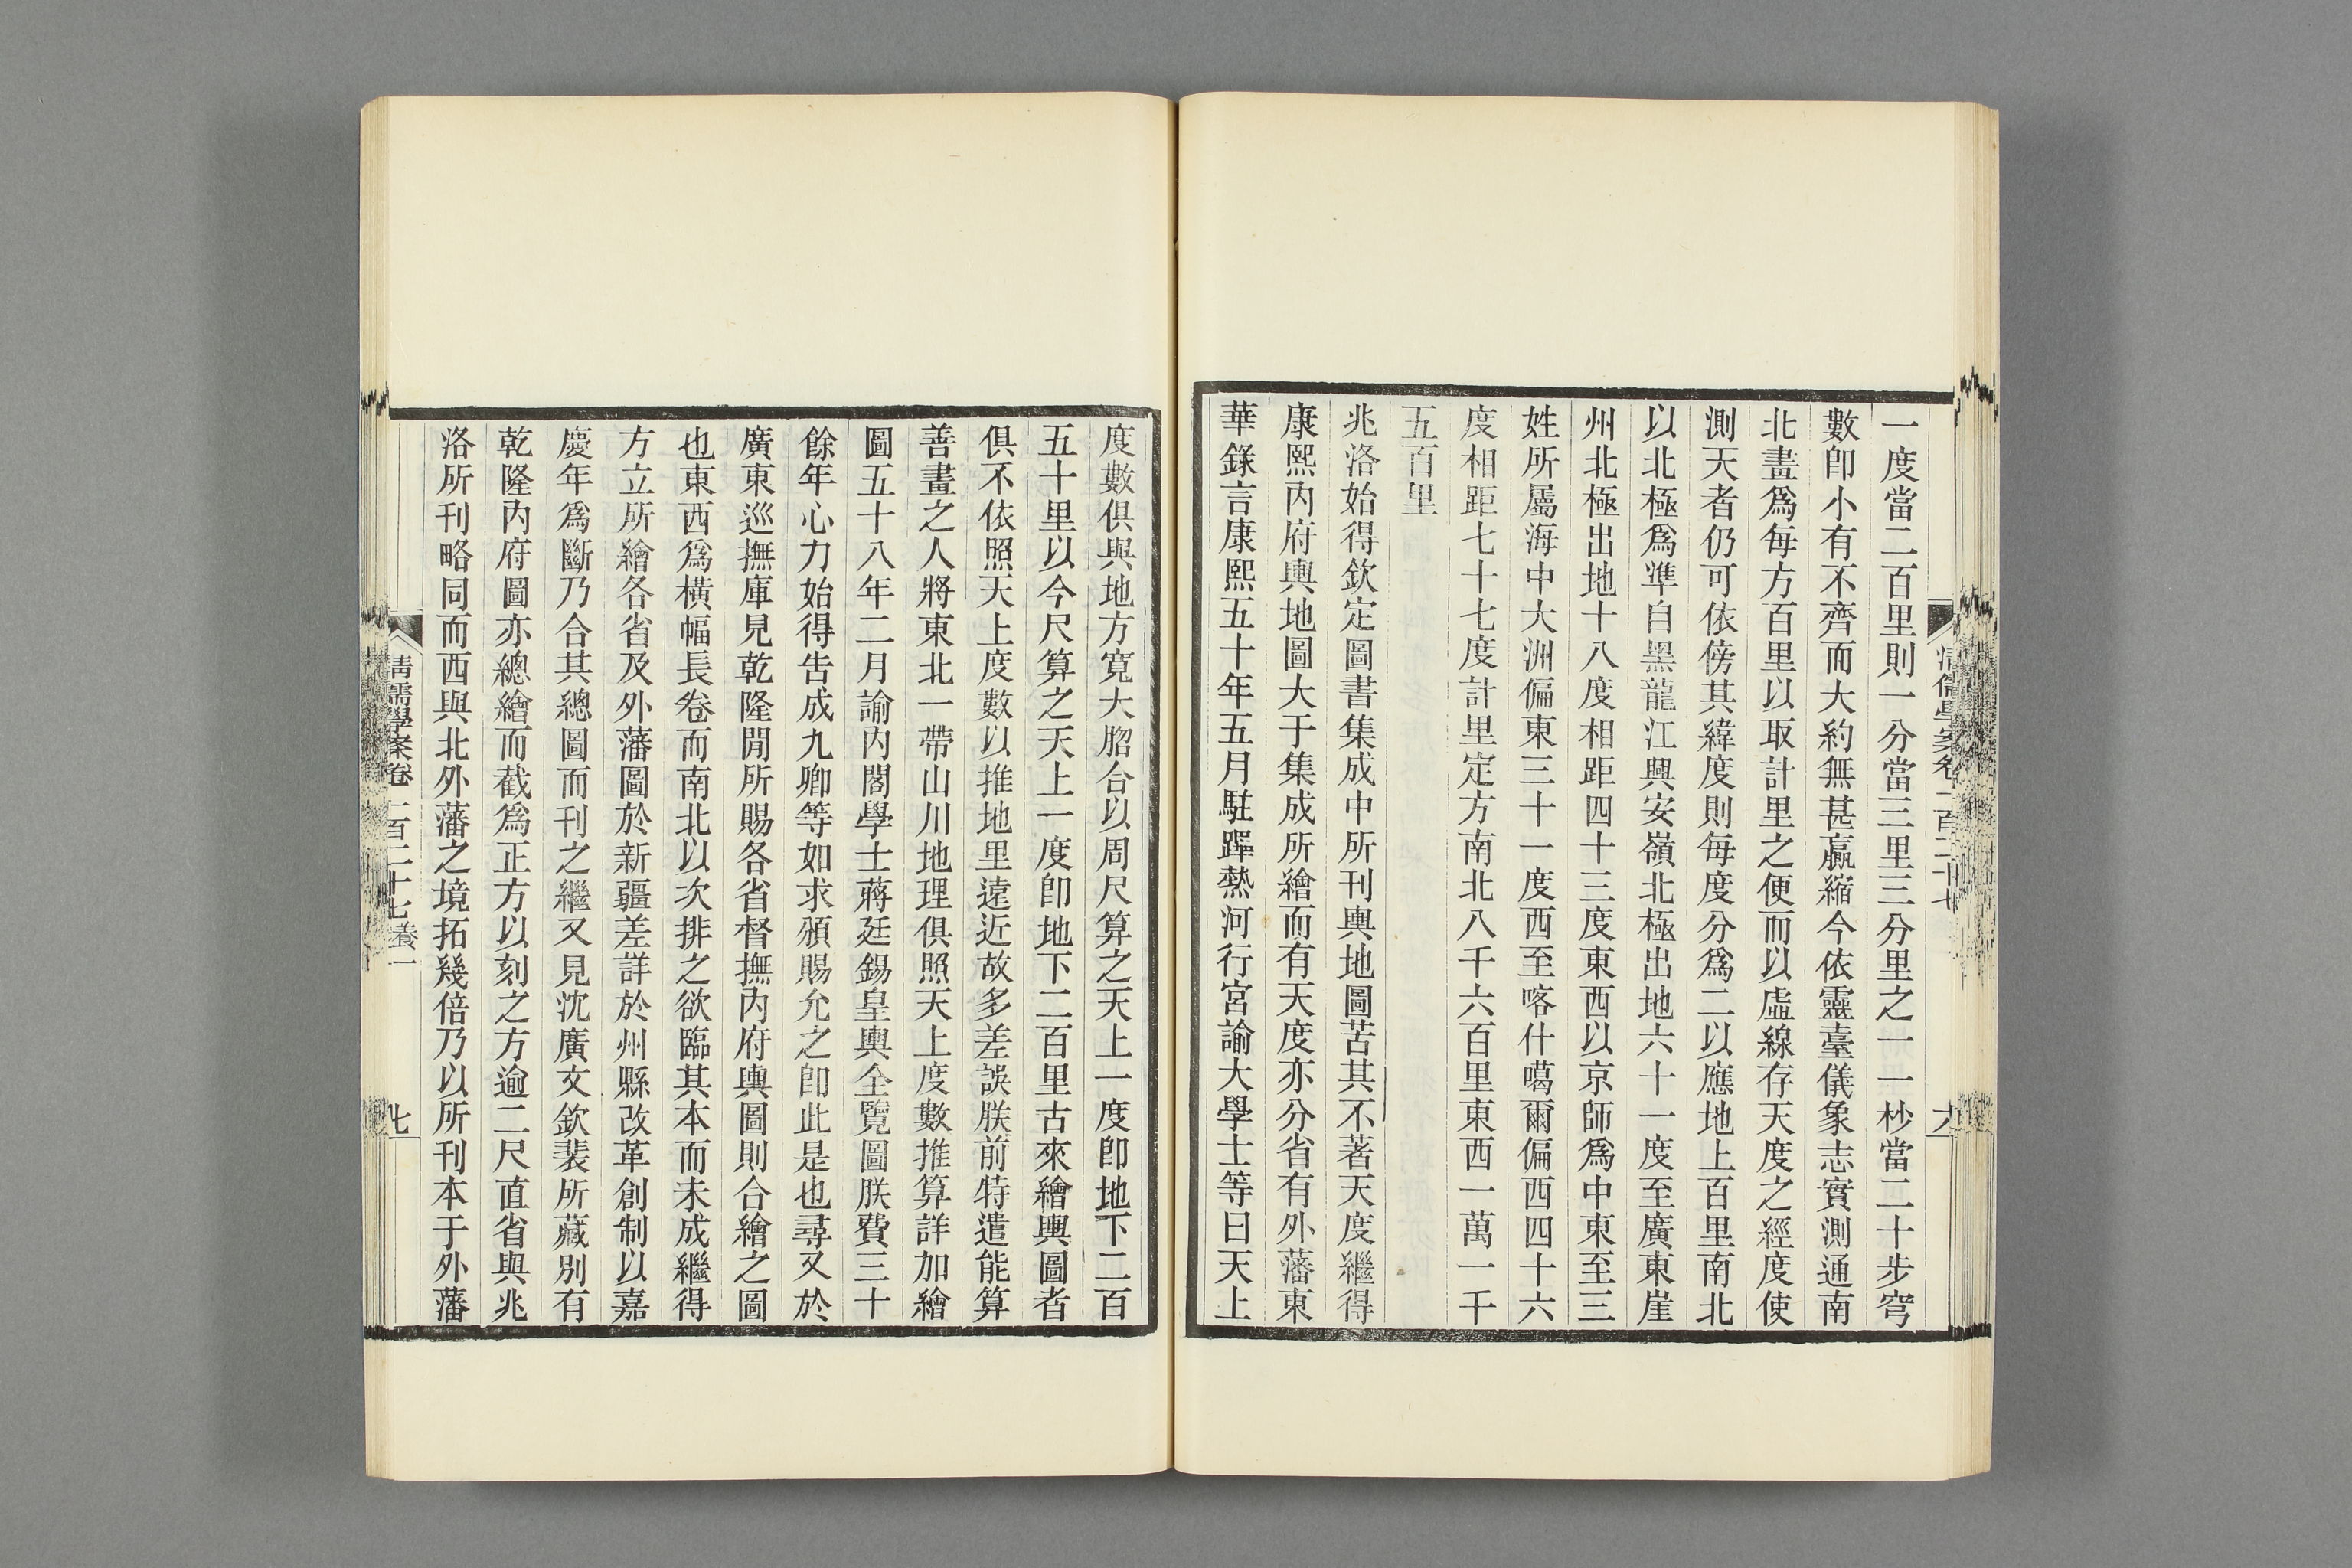 一度當二百里則一分當三里三分里之一一杪當二十步穹
數卽小有不齊而大約無甚贏縮今依靈臺儀象志實測通南
北畫爲每方百里以取計里之便而以虛線存天度之經度使
測天者仍可依傍其緯度則每度分爲二以應地上百里南北
以北極爲準自黑龍江興安嶺北極出地六十一度至廣東崖
州北極出地十八度相距四十三度東西以京師爲中東至三
姓所屬海中大洲偏東三十一度西至喀什噶爾偏西四十六
度相距七十七度計里定方南北八千六百里東西一萬一千
五百里
兆洛始得欽定圖書集成中所刊輿地圖苦其不著天度繼得
康熙內府輿地圖大于集成所繪而有天度亦分省有外藩東
華錄言康熙五十年五月駐蹕熱河行宮諭大學士等曰天上
度數俱與地方寬大脗合以周尺算之天上一度卽地下二百
五十里以今尺算之天上一度卽地下二百里古來繪輿圖者
俱不依照天上度數以推地里遠近故多差誤朕前特遣能算
善畫之人將東北一帶山川地理俱照天上度數推算詳加繪
圖五十八年二月諭內閣學士蔣廷錫皇輿全覽圖朕費三十
餘年心力始得告成九卿等如求頒賜允之卽此是也尋又於
廣東巡撫庫見乾隆閒所賜各省督撫內府輿圖則合繪之圖
也東西爲橫幅長卷而南北以次排之欲臨其本而未成繼得
方立所繪各省及外藩圖於新疆差詳於州縣改革創制以嘉
慶年爲斷乃合其總圖而刊之繼又見沈廣文欽裴所藏別有
乾隆內府圖亦總繪而截爲正方以刻之方逾二尺直省與兆
洛所刊略同而西與北外藩之境拓幾倍乃以所刊本于外藩
清儒學案卷一百二十七 養一
七